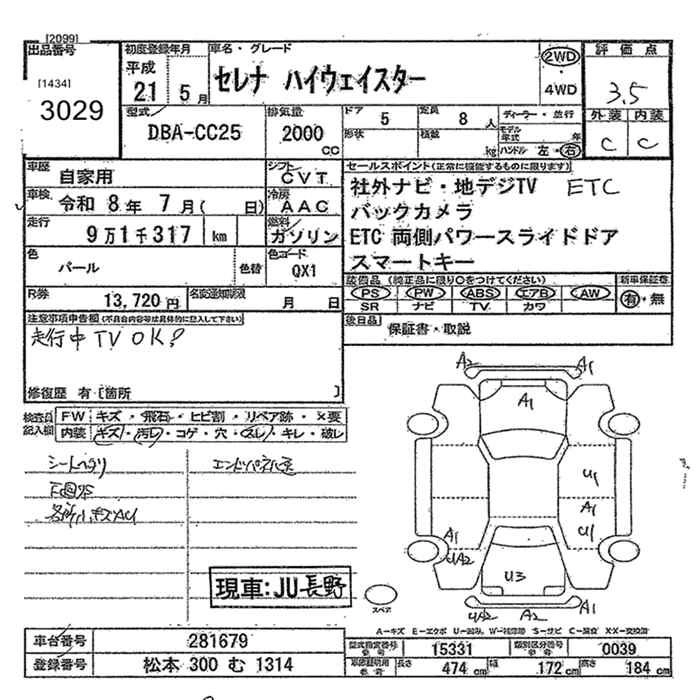 [2099]
出品番号
[1434]
3029
初度登録年月
平成
21 5 月
車名・グレード
セレナ ハイウェイスター
2WD
・
4WD
評価点
3.5
外装 内装
C C
型式
DBA-CC25
排気量
2000
CC
ドア 5
定員 8 人
形状
積載 kg
ディーラー・並行
モデル年式 年
ハンドル 左・右
車歴
自家用
シフト
CVT
車検
令和 8年 7月( 日)
冷房
AAC
走行
9万1千317 km
燃料
ガソリン
色
パール
色替
色コード
QX1
R券
13,720 円
名変通知期限
月 日
セールスポイント(正常に機能するものに限ります)
社外ナビ・地デジTV ETC
バックカメラ
ETC 両側パワースライドドア
スマートキー
装備品(純正品に限り○をつけてください)
PS PW ABS エアB AW
SR ナビ TV カワ
新車保証書
有・無
後日品
保証書・取説
注意事項申告欄(不具合内容等は具体的に記入して下さい)
走行中TV OK?
修復歴 有[箇所 ]
検査員
記入欄
FW キズ・飛石・ヒビ割・リペア跡・×要
内装 キズ・汚レ・コゲ・穴・スレ・キレ・破レ
シートヘタリ
エンドパネル
現車:JU長野
スペア
A2 A1
A1
U1
A1
U1
A1
UA2
U3
UA2 A2 A1
A-キズ E-エクボ U-凹み W-補修跡 S-サビ C-腐食 X・XX-交換済
車台番号
281679
登録番号
松本 300 む 1314
型式指定番号
15331
類別区分番号
0039
車両証明用
長さ 474 cm
幅 172 cm
高さ 184 cm